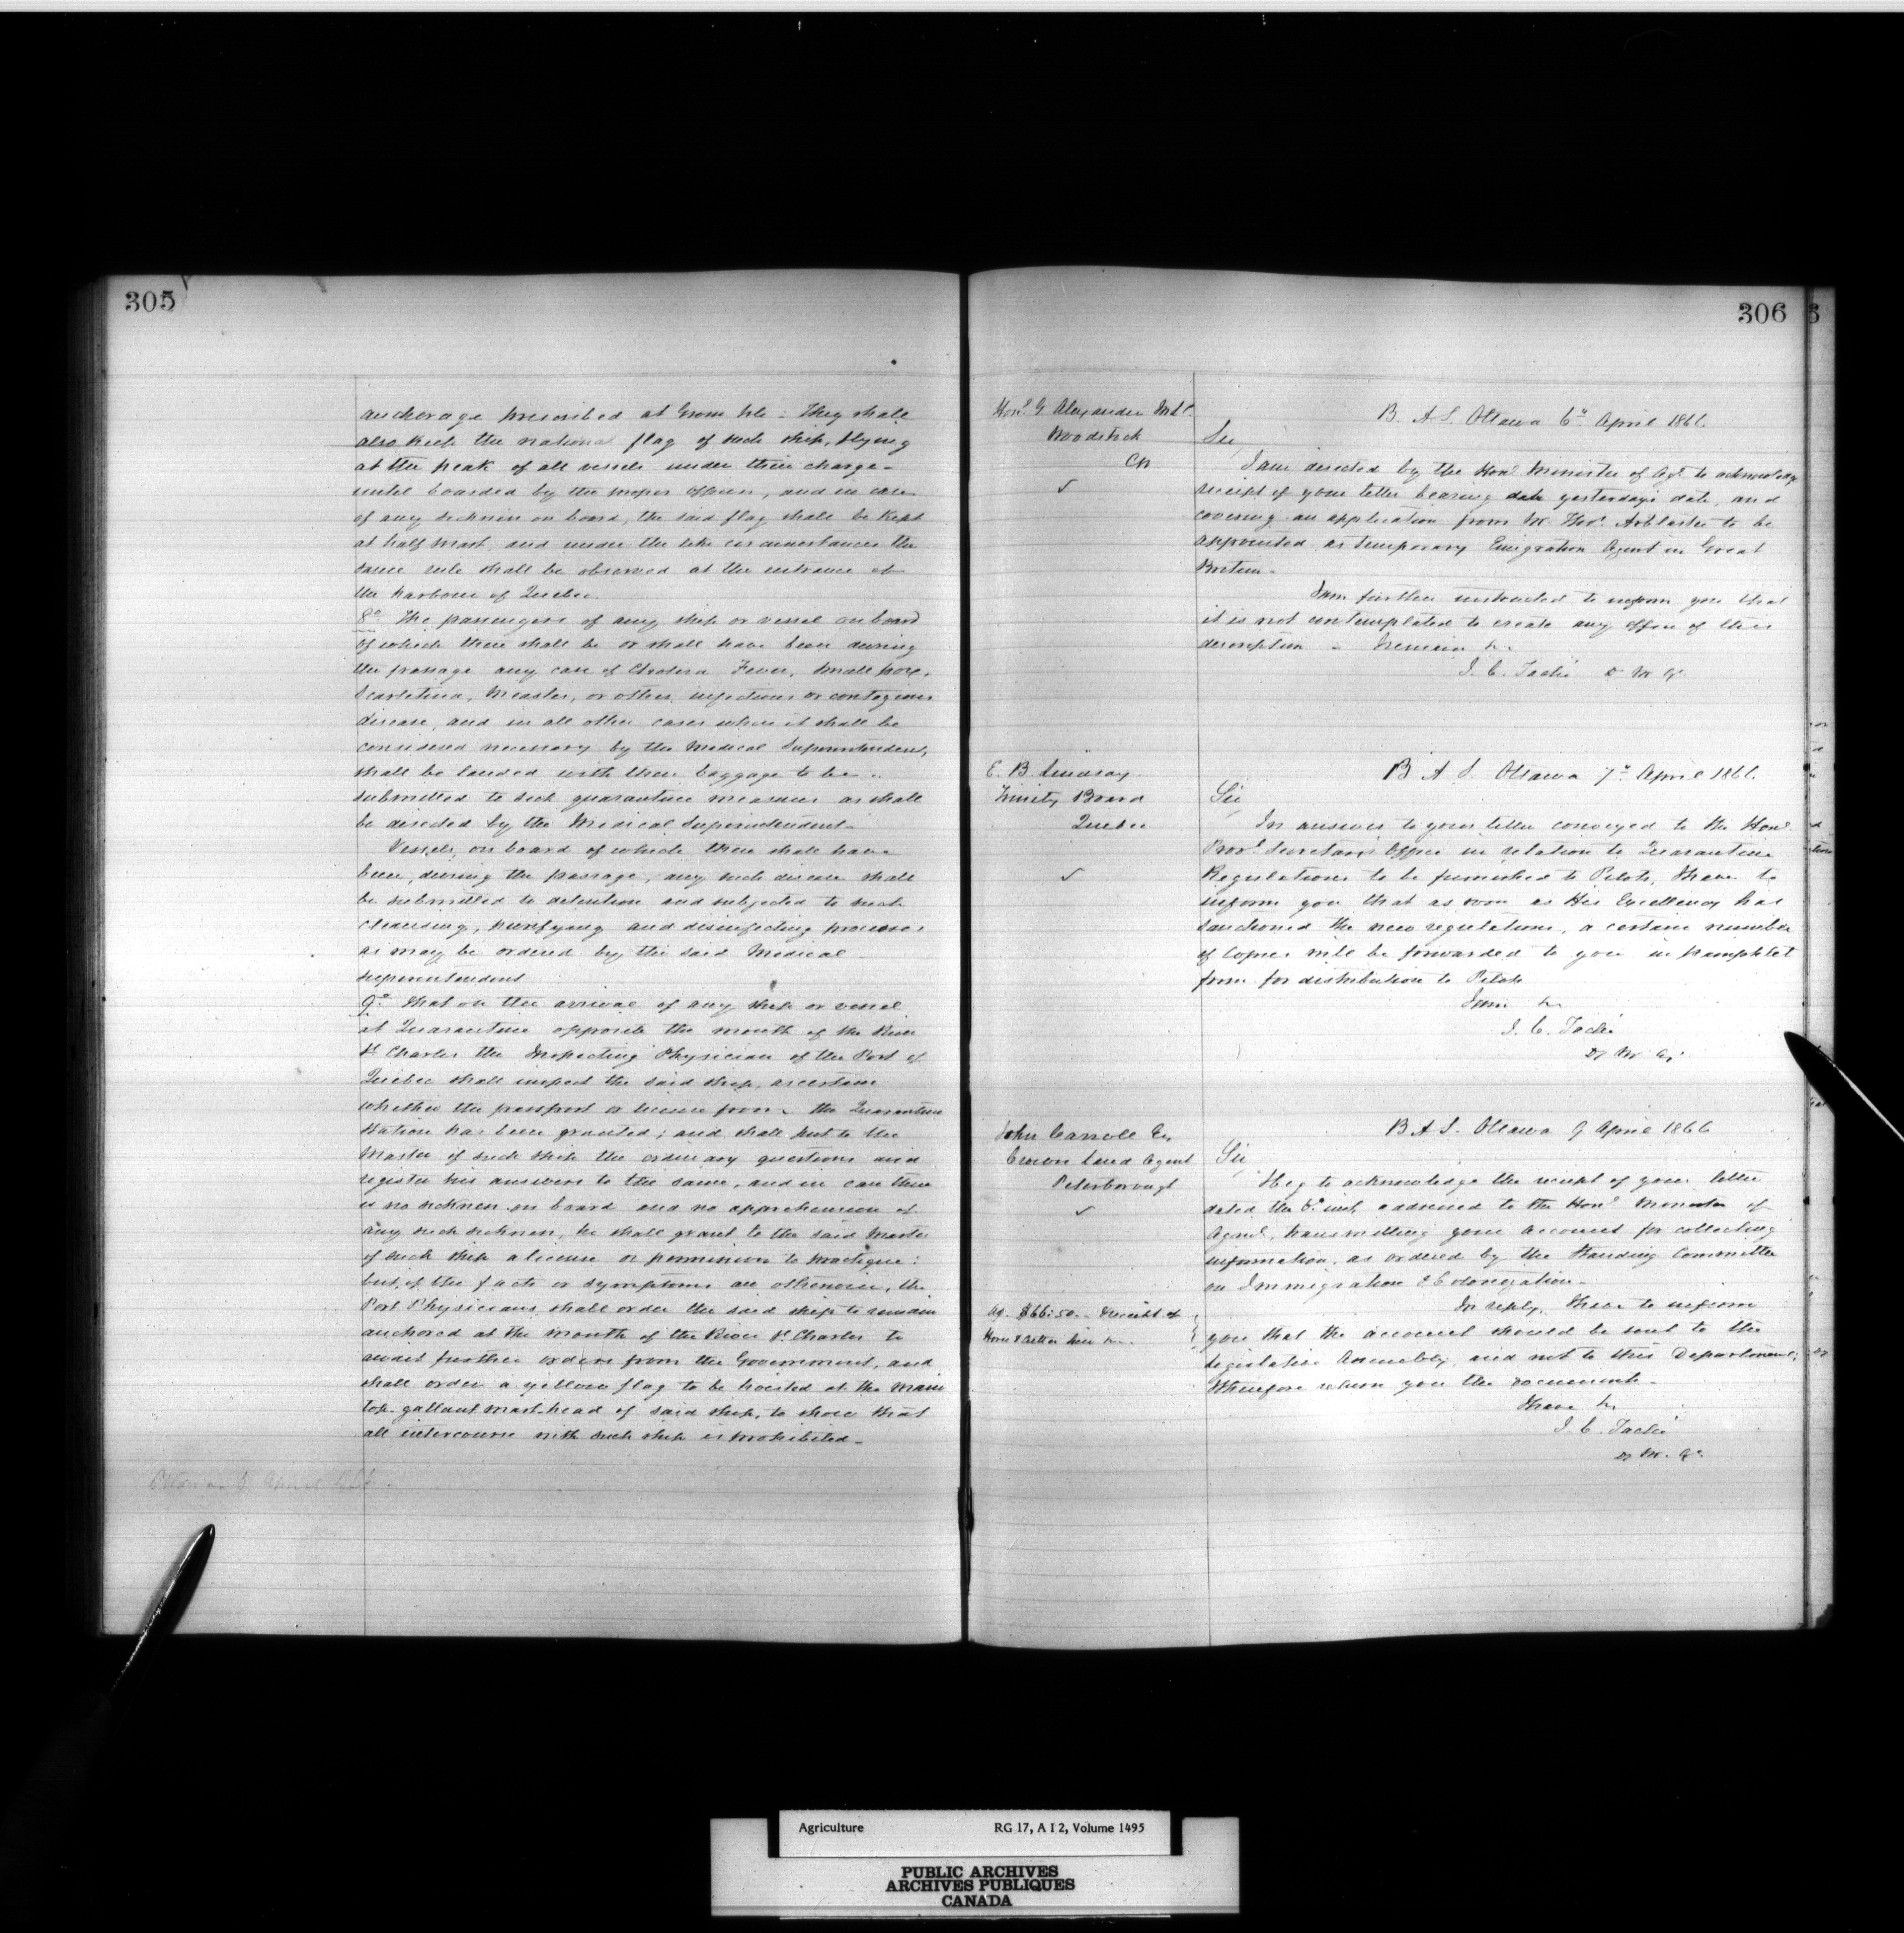 305
anchorage prescribed at Grosse Isle - They shall
also keep the national flag of such ship, flying
at the peak of all vessels under their charge -
until boarded by the proper Officer, and in case
of any sickness on board, the said flag shall be kept
at half mast, and under the like circumstances the
same rule shall be observed at the entrance of
the harbour of Quebec.
8o The passengers of any ship or vessel on board
of which there shall be or shall have been during
the passage any case of Cholera Fever, Small pox,
Scarletina, Measles, or other infectious or contagious
disease, and in all other cases where it shall be
considered necessary by the Medical Superintendent,
shall be landed with their baggage to be
submitted to such quarantine measures as shall
be directed by the Medical Superintendent -
Vessels, on board of which there shall have
been, during the passage, any such disease shall
be submitted to detention and subjected to such
cleansing, purifying and disinfecting processes
as may be ordered by the said Medical
superintendent
9o That on the arrival of any ship or vessel
at Quarantine opposite the mouth of the River
St Charles the Inspecting Physician of the Port of
Quebec shall inspect the said ship, ascertain
whether the passport or license from the Quarantine
Station has been granted; and shall put to the
Master of such ship the ordinary questions and
register his answers to the same, and in case there
is no sickness on board and no apprehension of
any such sickness, he shall grant to the said Master
of such ship a license or permission to practique:
but, if the facts or symptoms are otherwise, the
Port Physician shall order the said ship to remain
anchored at the mouth of the River St Charles to
await further orders from the Government, and
shall order a yellow flag to be hoisted at the main
top-gallant mast-head of said ship, to show that
all intercourse with such ship is prohibited -
306
Honl G. Alexander M.L.C.
Woodstock
CW
B. A. S. Ottawa 6o April 1866.
Sir,
I am directed by the Honl Minister of Agl to acknowledge
receipt of your letter bearing date yesterday's date, and
covering an application from Mr Thos Arblaster to be
appointed as temporary Emigration Agent in Great
Britain -
I am further instructed to inform you that
it is not contemplated to create any office of this
description - I remain &c
J. C. Taché D M A.
E. B. Lindsay
Trinity Board
Quebec
B A S Ottawa 7o April 1866.
Sir,
In answer to your letter conveyed to the Honl
Provl Secretary's Office in relation to Quarantine
Regulations to be furnished to Pilots, I have to
inform you that as soon as His Excellency has
sanctioned the new regulations, a certain number
of Copies will be forwarded to you in pamphlet
form for distribution to Pilots
I am &c
J. C. Taché
D M A.
John Carroll Es
Crown Land Agent
Peterborough
B A S. Ottawa 9 April 1866
Sir,
I beg to acknowledge the receipt of your letter
dated the 6o inst, addressed to the Honl Minister of
Agrl, transmitting your account for collecting
information, as ordered by the Standing Committee
on Immigration & Colonization -
In reply, I have to inform
you that the account should be sent to the
Legislative Assembly, and not to this Department;
I therefore return you the document -
I have &c
J. C. Taché
D M. A.
$66.50 - Receipt of
Horse &
Agriculture
RG 17, A I 2, Volume 1495
PUBLIC ARCHIVES
ARCHIVES PUBLIQUES
CANADA